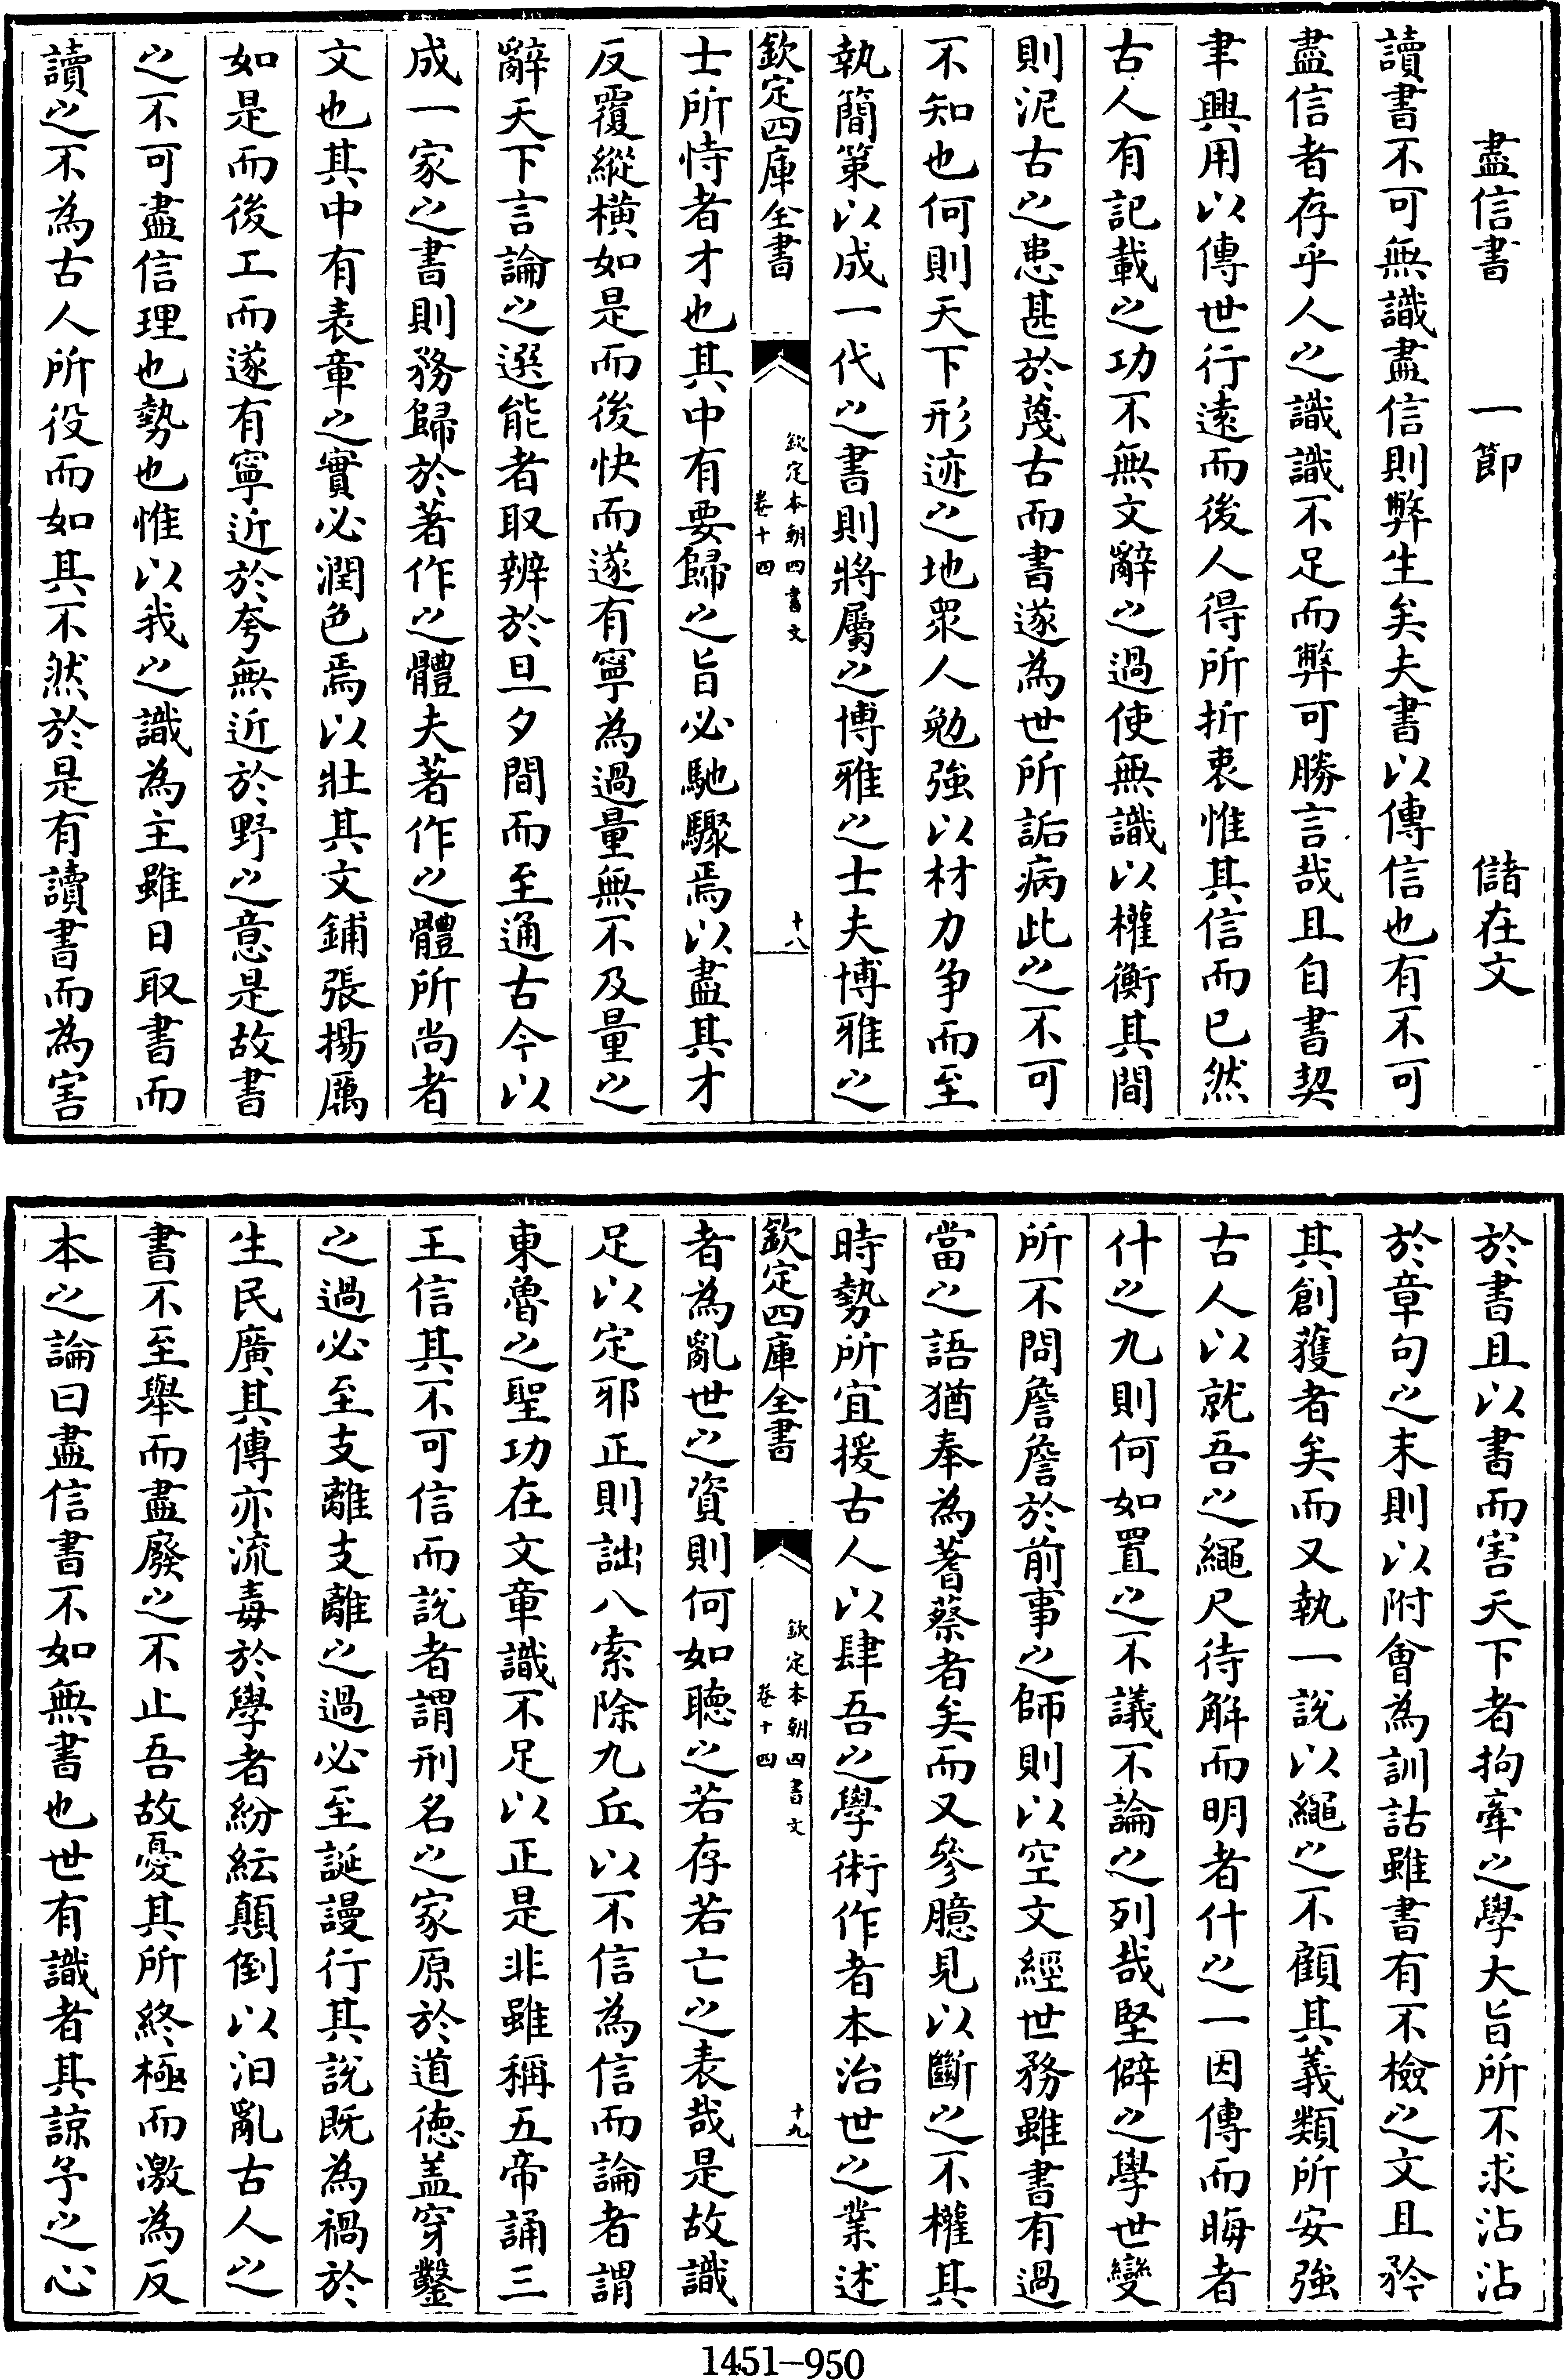 盡信書　一節　儲在文
讀書不可無識盡信則弊生矣夫書以傳信也有不可
盡信者存乎人之識識不足而弊可勝言哉且自書契
聿興用以傳世行遠而後人得所折衷惟其信而已然
古人有記載之功不無文辭之過使無識以權衡其間
則泥古之患甚於蔑古而書遂為世所詬病此之不可
不知也何則天下形迹之地眾人勉強以材力争而至
執簡策以成一代之書則將屬之博雅之士夫博雅之
欽定四庫全書
欽定本朝四書文
卷十四
十八
士所恃者才也其中有要歸之旨必馳驟焉以盡其才
反覆縱橫如是而後快而遂有寧為過量無不及量之
辭天下言論之選能者取辨於旦夕間而至通古今以
成一家之書則務歸於著作之體夫著作之體所尚者
文也其中有表章之實必潤色焉以壯其文鋪張揚厲
如是而後工而遂有寧近於夸無近於野之意是故書
之不可盡信理也勢也惟以我之識為主雖日取書而
讀之不為古人所役而如其不然於是有讀書而為害
於書且以書而害天下者拘牽之學大旨所不求沾沾
於章句之末則以附會為訓詁雖書有不檢之文且矜
其創獲者矣而又執一說以繩之不顧其義類所安強
古人以就吾之繩尺待解而明者什之一因傳而晦者
什之九則何如置之不議不論之列哉堅僻之學世變
所不問詹詹於前事之師則以空文經世務雖書有過
當之語猶奉為蓍蔡者矣而又參臆見以斷之不權其
時勢所宜援古人以肆吾之學術作者本治世之業述
欽定四庫全書
欽定本朝四書文
卷十四
十九
者為亂世之資則何如聽之若存若亡之表哉是故識
足以定邪正則詘八索除九丘以不信為信而論者謂
東魯之聖功在文章識不足以正是非雖稱五帝誦三
王信其不可信而說者謂刑名之家原於道德盖穿鑿
之過必至支離支離之過必至誕謾行其說既為禍於
生民廣其傳亦流毒於學者紛紜顛倒以汩亂古人之
書不至舉而盡廢之不止吾故憂其所終極而激為反
本之論曰盡信書不如無書也世有識者其諒予之心
1451-950